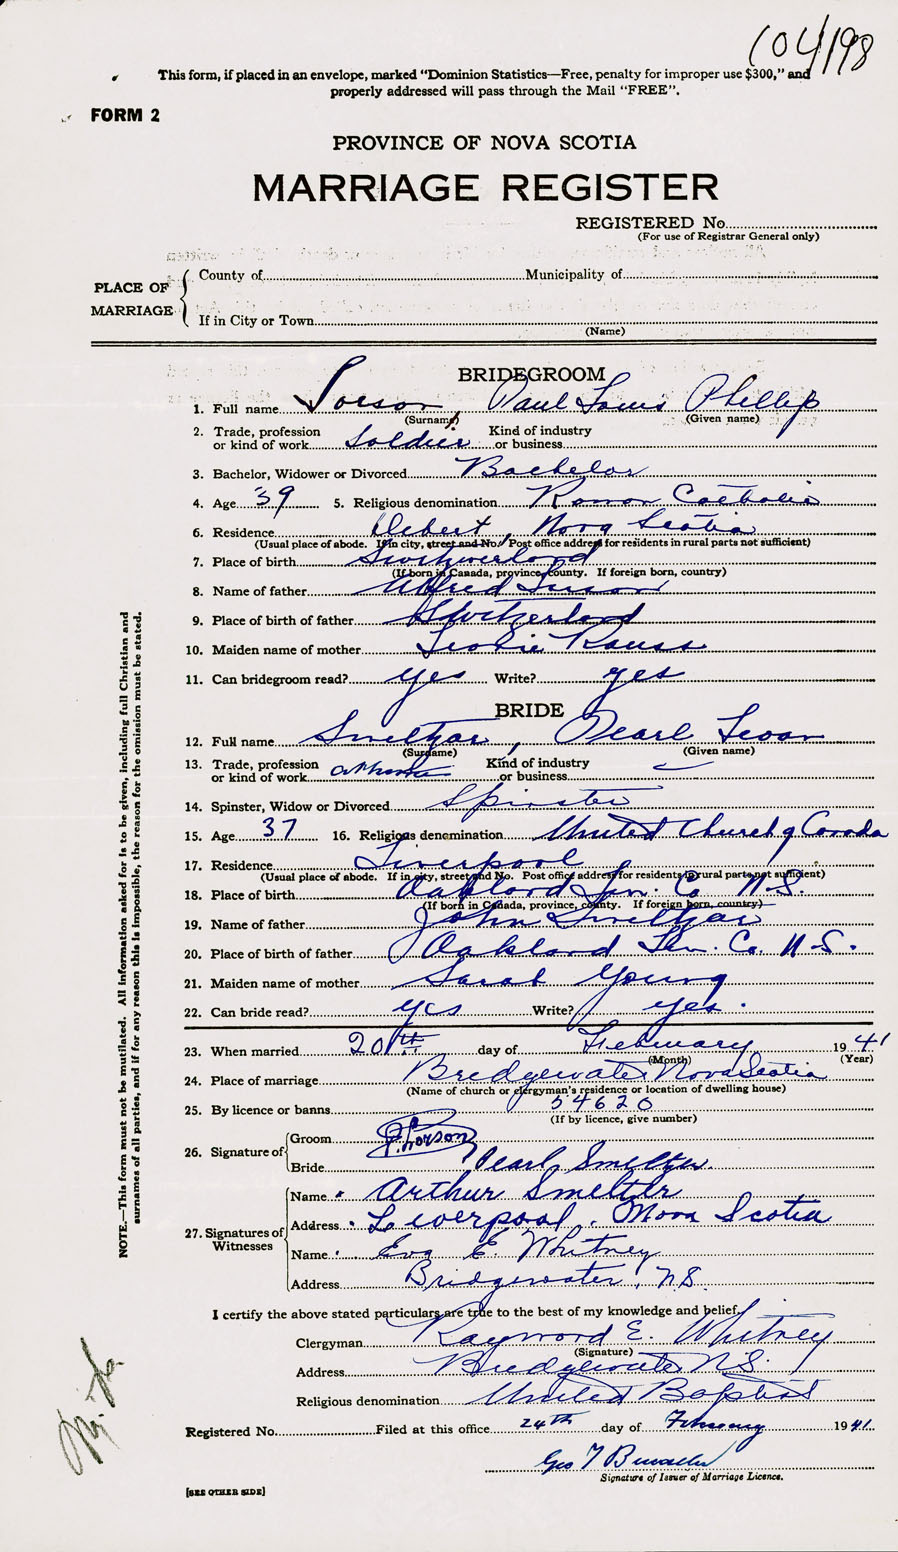 104198
This form, if placed in an envelope, marked "Dominion Statistics—Free, penalty for improper use $300," and
properly addressed will pass through the Mail "FREE".
FORM 2
PROVINCE OF NOVA SCOTIA
MARRIAGE REGISTER
REGISTERED No.
(For use of Registrar General only)
PLACE OF MARRIAGE
County of Municipality of
If in City or Town
(Name)
BRIDEGROOM
1. Full name Paul Louis Phillip
(Surname) (Given name)
2. Trade, profession or kind of work Soldier Kind of industry or business
3. Bachelor, Widower or Divorced Bachelor
4. Age 39 5. Religious denomination Roman Catholic
6. Residence Debert, Nova Scotia
(Usual place of abode. If in city, street and No. Post office address for residents in rural parts not sufficient)
7. Place of birth Switzerland
(If born in Canada, province, county. If foreign born, country)
8. Name of father Alfred
9. Place of birth of father Switzerland
10. Maiden name of mother
11. Can bridegroom read? yes Write? yes
BRIDE
12. Full name Smeltzer, Pearl
(Surname) (Given name)
13. Trade, profession or kind of work at home Kind of industry or business
14. Spinster, Widow or Divorced Spinster
15. Age 37 16. Religious denomination United Church of Canada
17. Residence Liverpool
(Usual place of abode. If in city, street and No. Post office address for residents in rural parts not sufficient)
18. Place of birth Oakland Lun. Co. N.S.
(If born in Canada, province, county. If foreign born, country)
19. Name of father John Smeltzer
20. Place of birth of father Oakland Lun. Co. N.S.
21. Maiden name of mother Sarah Young
22. Can bride read? yes Write? yes.
23. When married 20th day of February 1941
(Month) (Year)
24. Place of marriage Bridgewater Nova Scotia
(Name of church or clergyman's residence or location of dwelling house)
25. By licence or banns 54620
(If by licence, give number)
26. Signature of Groom P. Lorson
Bride Pearl Smeltzer.
27. Signatures of Witnesses
Name Arthur Smeltzer
Address Liverpool, Nova Scotia
Name Eva E. Whitney
Address Bridgewater, N.S.
I certify the above stated particulars are true to the best of my knowledge and belief.
Clergyman Raymond E. Whitney
(Signature)
Address Bridgewater N.S.
Religious denomination United Baptist
Registered No. Filed at this office 24th day of February 1941.
Geo T
Signature of Issuer of Marriage Licence.
[SEE OTHER SIDE]
NOTE.—This form must not be mutilated. All information asked for is to be given, including full Christian and
surnames of all parties, and if for any reason this is impossible, the reason for the omission must be stated.